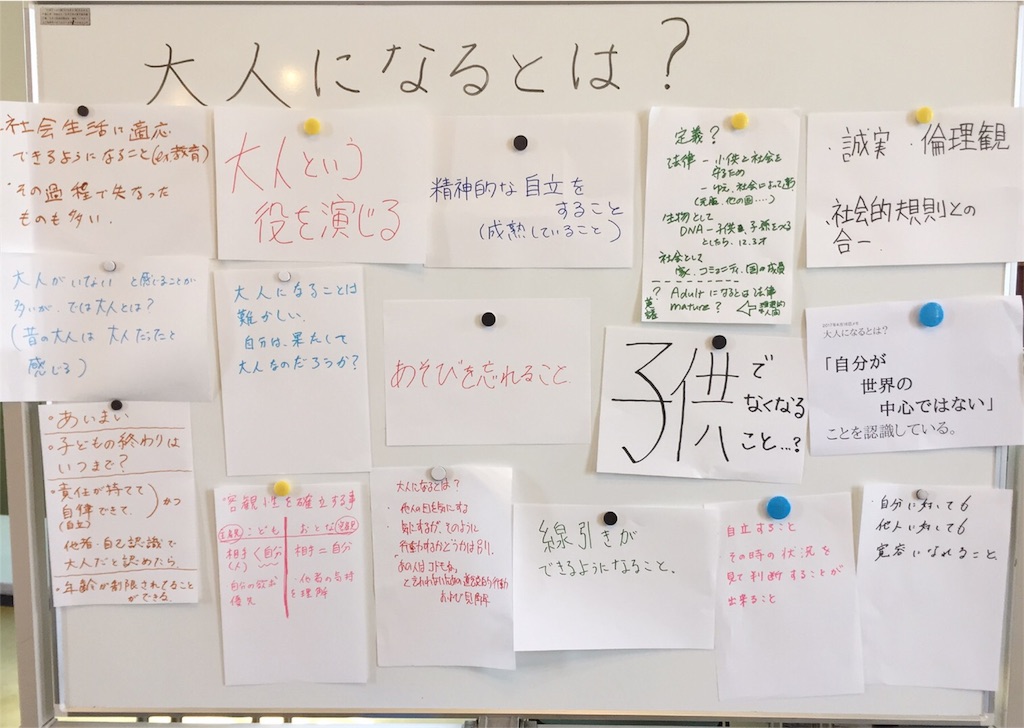 大人になるとは?
・社会生活に適応
できるようになること(ex教育)
・その過程で失なった
ものも多い.
大人という
役を演じる
精神的な自立を
すること
(成熟していること)
定義?
法律 - 小供と社会を
守るため
- ゆえ、社会によって違う
(元服、他の国....)
生物として
DNA - 子供、子孫をつくる
としたら、12.3才
社会として
家、コミュニティ、国の成員
? Adultになるとは法律
英語 mature?
・誠実 ・倫理観
・社会的規則との
合一.
大人がいない と感じることが
多いが、では大人とは?
(昔の大人は 大人だったと
感じる)
大人になることは
難かしい.
自分は、果たして
大人なのだろうか?
あそびを忘れること.
子供で
なくなる
こと...?
大人になるとは?
「自分が
世界の
中心ではない」
ことを認識している。
・あいまい
・子どもの終わりは
いつまで?
・責任が持てて
自律できて、
(自立)
かつ
他者・自己認識で
大人だと認めたら
・年齢が制限されてること
ができる.
・客観性を確立する事
主観 こども
おとな 客観
相手<自分
(人)
相手=自分
自分の欲求
優先
・他者の気持
を理解
大人になるとは?
・他人の目を気にする
・気にするが、そのように
行動するかどうかは別り.
・あの人はコドモね、
と言われない
行動
および見解
線引きが
できるようになること.
自立すること
その時の状況を
見て判断することが
出来ること
・自分に対しても
他人に対しても
寛容になれること